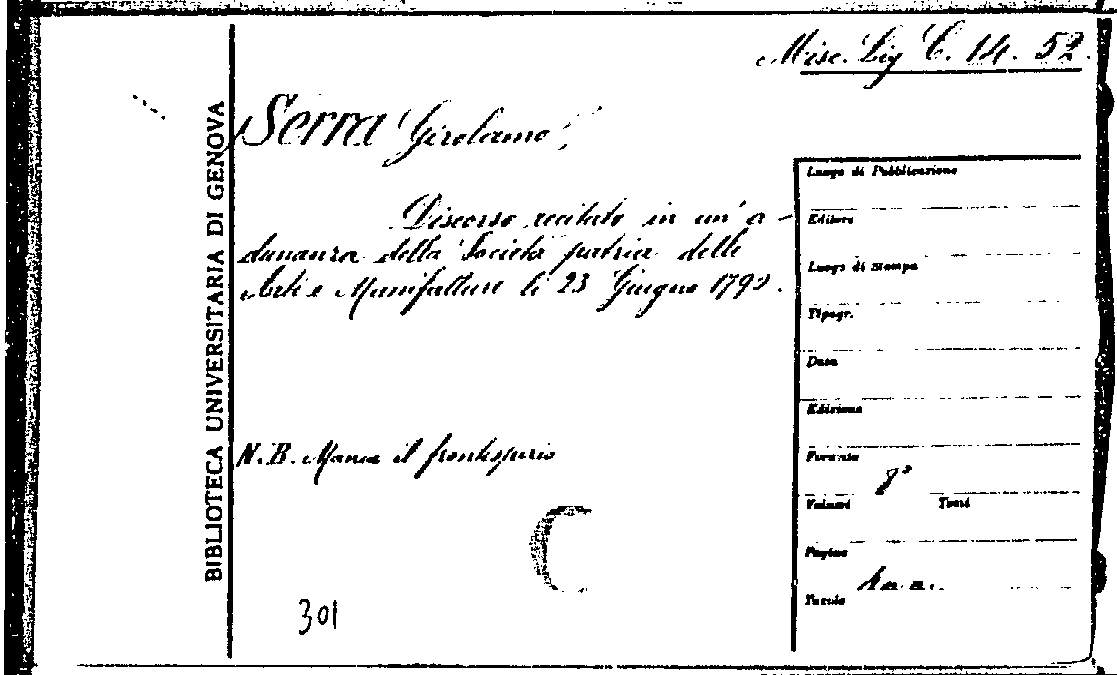 Misc. Lig C. 14. 52.
BIBLIOTECA UNIVERSITARIA DI GENOVA
Serra (Girolamo)
Discorso recitato in un' a-
dunanza della Società patria delle
Arti e Manifatture li 23 Giugno
N.B. Manca il frontispizio
301
Luogo di Pubblicazione
Editore
Luogo di Stampa
Tipogr.
Data
Edizione
Formato 8°
Volumi Tomi
Pagine
Tavole